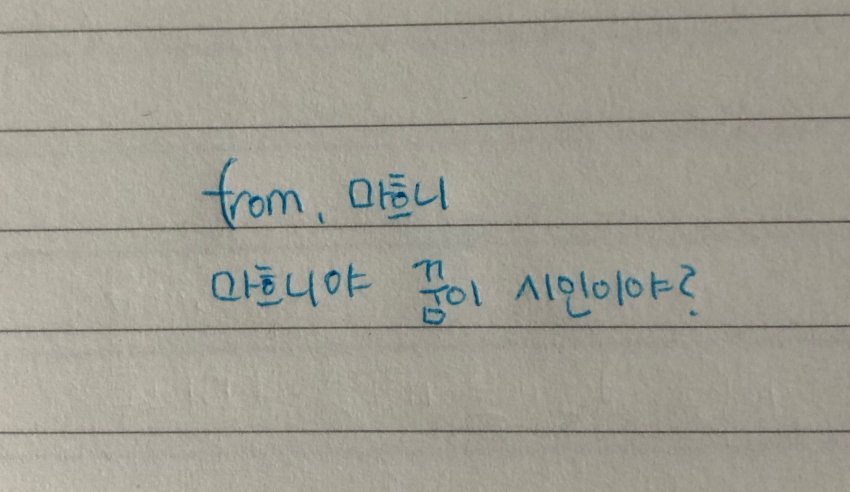 from, 마흐니
마흐니야 꿈이 시인이야?